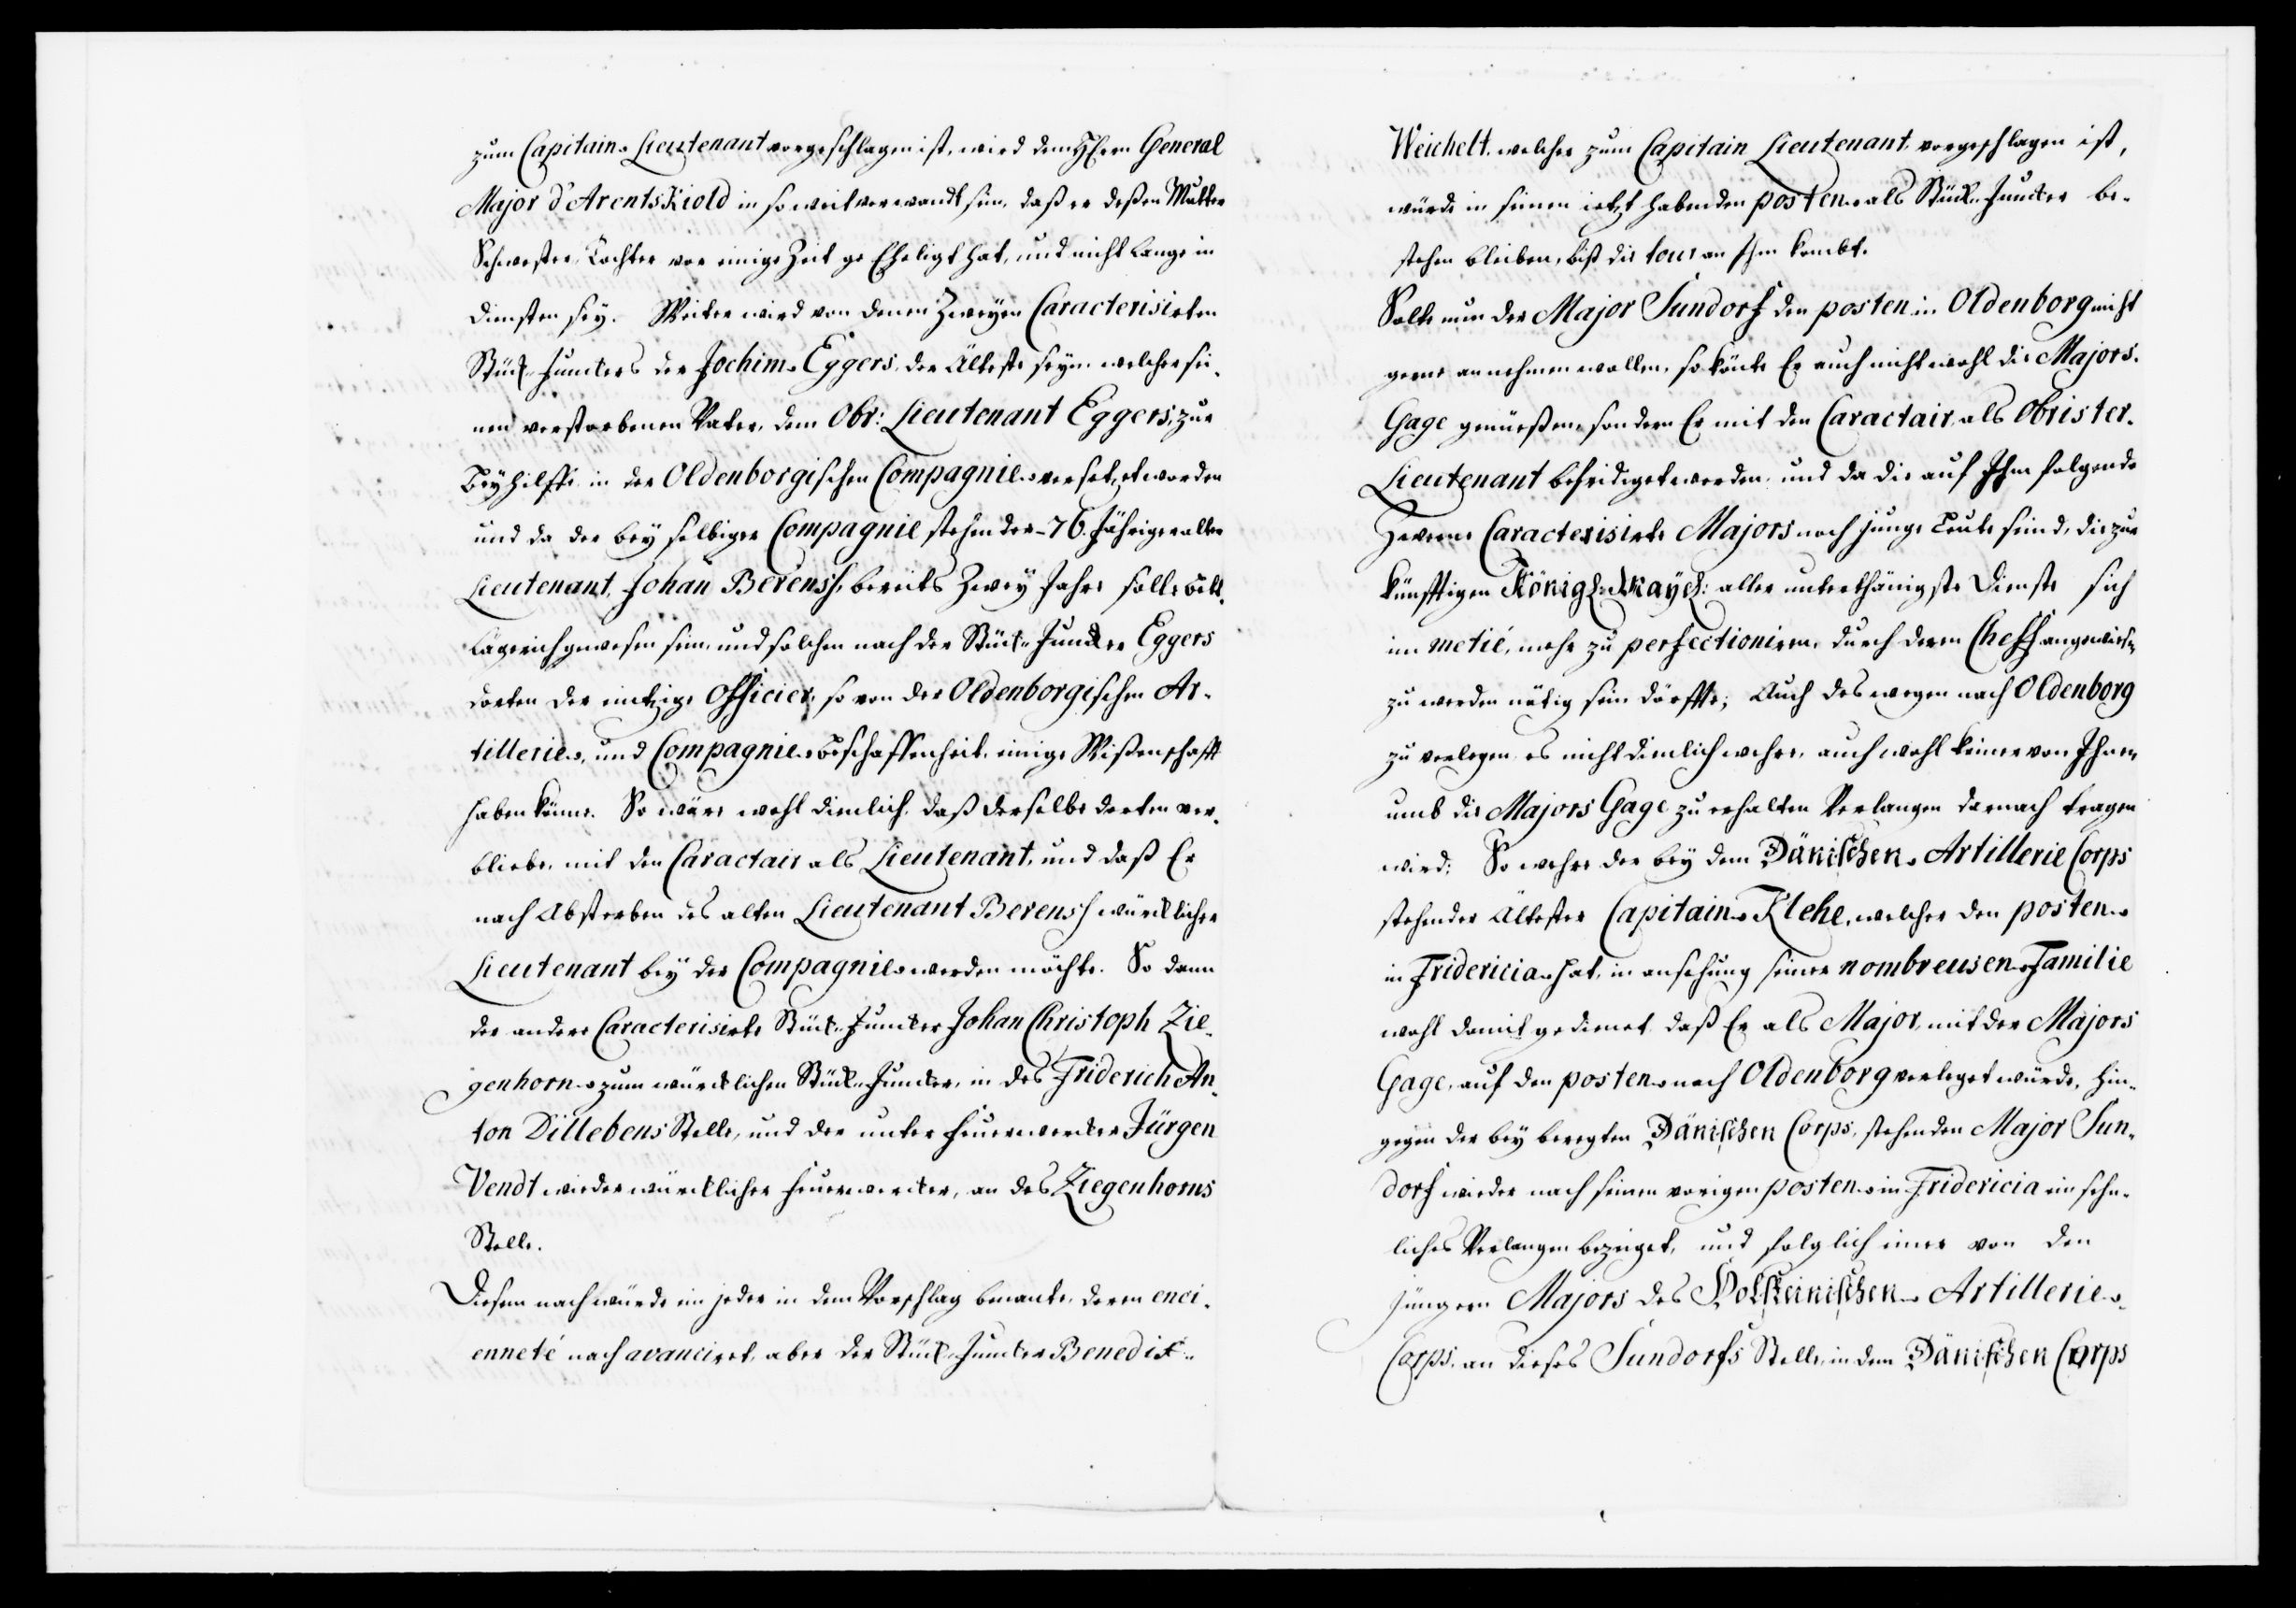 zum Capitain Lieutenant vorgeschlagen ist, wird dem Herrn General
Major d'ArentsKiold in so weit verwandt sein, daß er deßen Mutter
Schwester, Tochter vor einige Zeit ge Eheligt hat, und nicht lange in
diensten sey. Weiter wird von denen Zweyen Caracterisirten
Stück-Junckers der Jochim Eggers, der Älteste seyn, welcher sei-
nen verstorbenen Vater, dem Obr: Lieutenant Eggers, zur
Beyhilffe in der Oldenborgischen Compagnie versetzet worden
und da der bey selbiger Compagnie stehender 76. Jähriger alter
Lieutenant Johan Berens, bereits Zwey Jahre solle bett-
lägerich gewesen sein, und solchen nach der Stück-Juncker Eggers
dorten der eintzige Officier, so von der Oldenborgischen Ar-
tillerie, und Compagnie Beschaffenheit, einige Wißenschafft
haben könne. So wäre wohl dienlich, daß derselbe dorten ver-
bliebe, mit den Caractair als Lieutenant, und daß Er
nach Absterben des alten Lieutenant Berens würcklicher
Lieutenant bey der Compagnie werden möchte. So dann
der andere Caracterisirte Stück-Juncker Johan Christoph Zie-
genhorn zum würcklichen Stück-Juncker, in des Friderich An-
ton Dillebens Stelle, und der unter Feuerwercker Jürgen
Vendt wieder würcklicher Feuerwercker, an des Ziegenhorns
Stelle.
Diesem nach würde ein jeder in dem Vorschlag benante, deren enci-
enneté nach avanciret, aber der Stück-Juncker Benedix
Weichelt, welcher zum Capitain Lieutenant vorgeschlagen ist,
würde in seinen ietzt habenden posten als Stück-Juncker be-
stehen bleiben, biß die tour an Ihm kombt.
Solte nun der Major Sundorf den posten in Oldenborg nicht
gerne annehmen wollen, so könte Er auch nicht wohl die Majors
Gage genüeßen, sondern Er mit den Caractair, als Obrister
Lieutenant befridiget werden, und da die auf Ihm folgende
Herren Caracterisirte Majors noch junge Leute seind, die zur
künfftigen Königl: Mayel: aller unterthänigste Dienste sich
im metié, mehr zu perfectioniren, durch deren Cheff angewiesen
zu werden nötig sein dörffte; Auch deswegen nach Oldenborg
zu verlegen, es nicht dienlich wehre, auch wohl keiner von Ihnen
umb die Majors Gage zu erhalten Verlangen darnach tragen
wird: So wehre der bey dem Dänischen Artillerie Corps
stehender Ältester Capitain Klehe, welcher den posten
in Fridericia hat, in ansehung seiner nombreusen Familie
wohl damit gedienet, daß Er als Major, mit der Majors
Gage, auf den posten nach Oldenborg verleget würde, hin-
gegen der bey beregten Dänischen Corps, stehenden Major Sun-
dorf wieder nach seinen vorigen posten in Fridericia ein sehn-
liches Verlangen bezeiget, und folglich einer von den
jüngern Majors des Holsteinischen Artillerie
Corps, an dieses Sundorfs Stelle, in dem Dänischen Corps